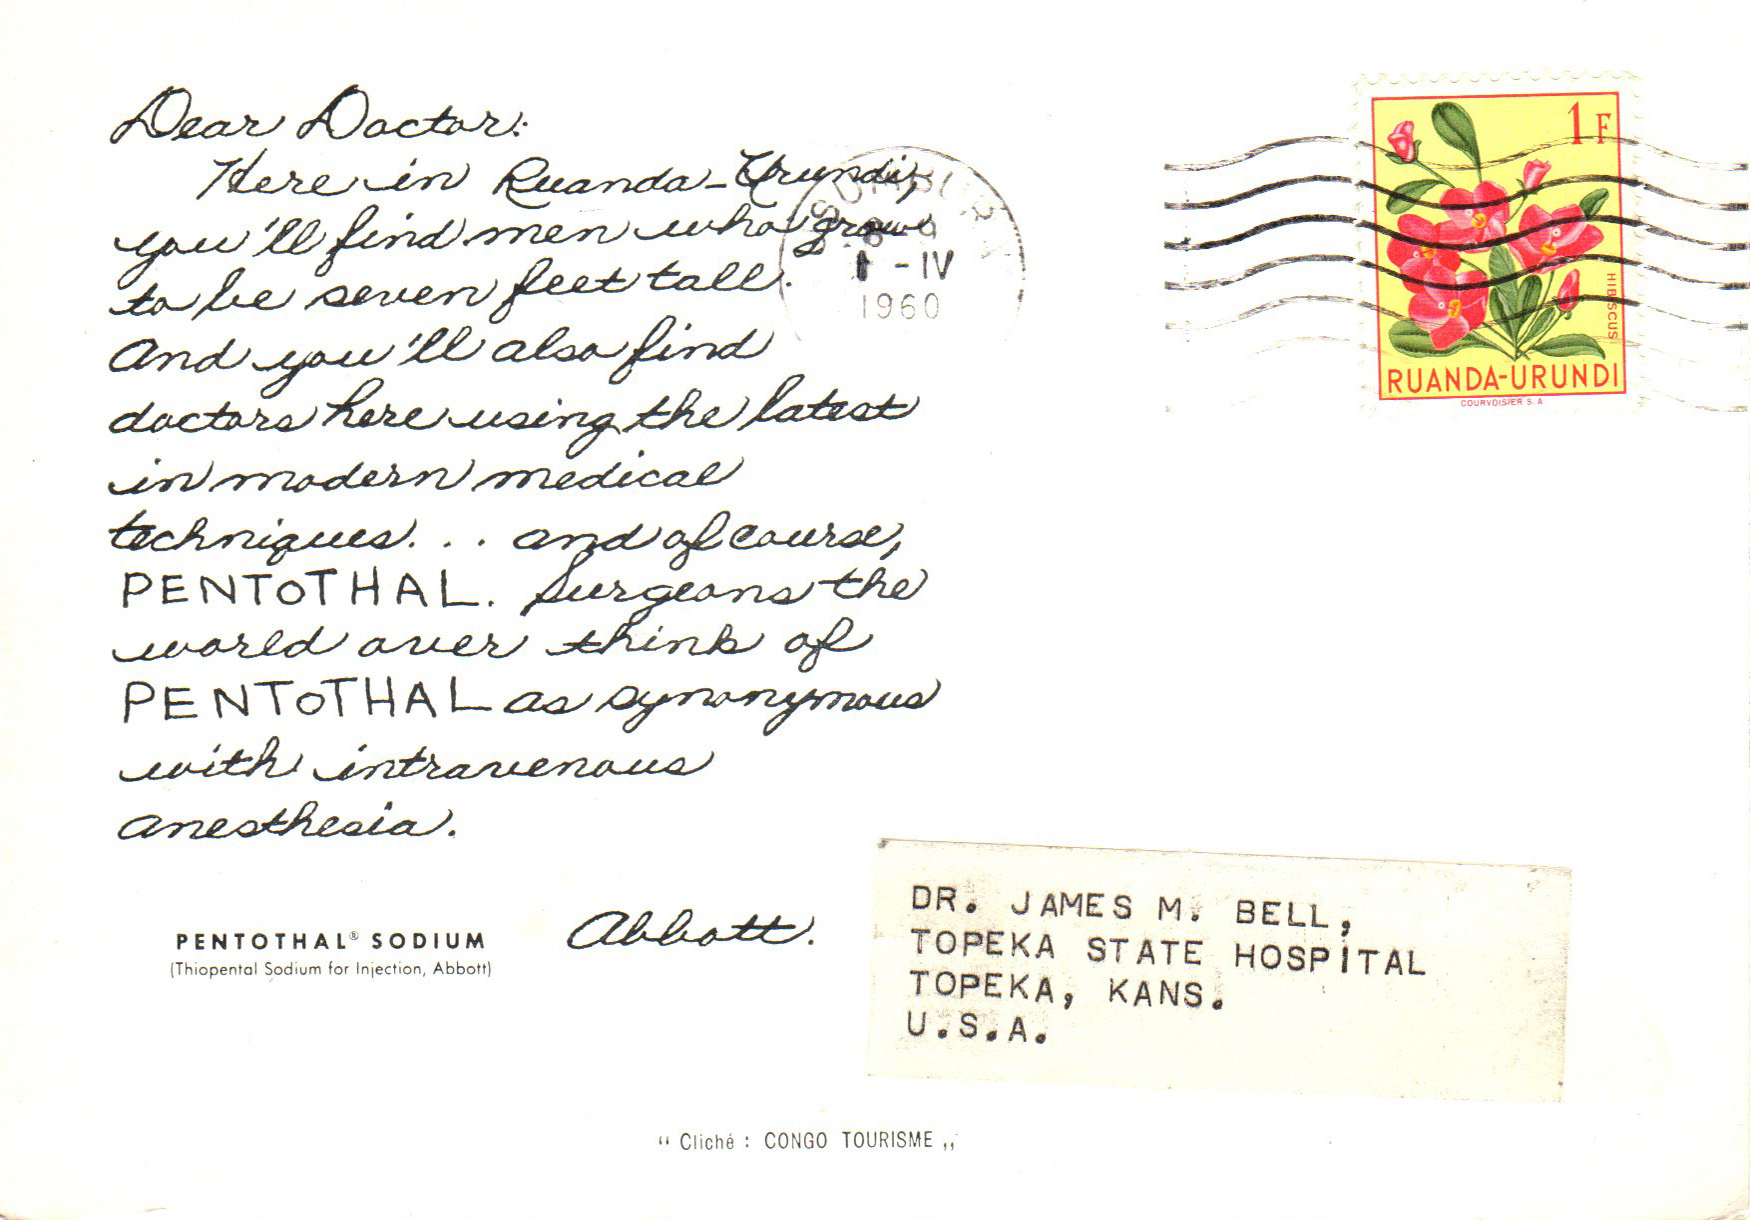 Dear Doctor:
Here in Ruanda-Urundi,
you'll find men who grow
to be seven feet tall.
And you'll also find
doctors here using the latest
in modern medical
techniques... and of course,
PENTOTHAL. Surgeons the
world over think of
PENTOTHAL as synonymous
with intravenous
anesthesia.
Abbott.
PENTOTHAL® SODIUM
(Thiopental Sodium for Injection, Abbott)
-IV
1960
1 F
HIBISCUS
RUANDA-URUNDI
COURVOISIER S.A
DR. JAMES M. BELL,
TOPEKA STATE HOSPITAL
TOPEKA, KANS.
U.S.A.
“ Cliché : CONGO TOURISME „